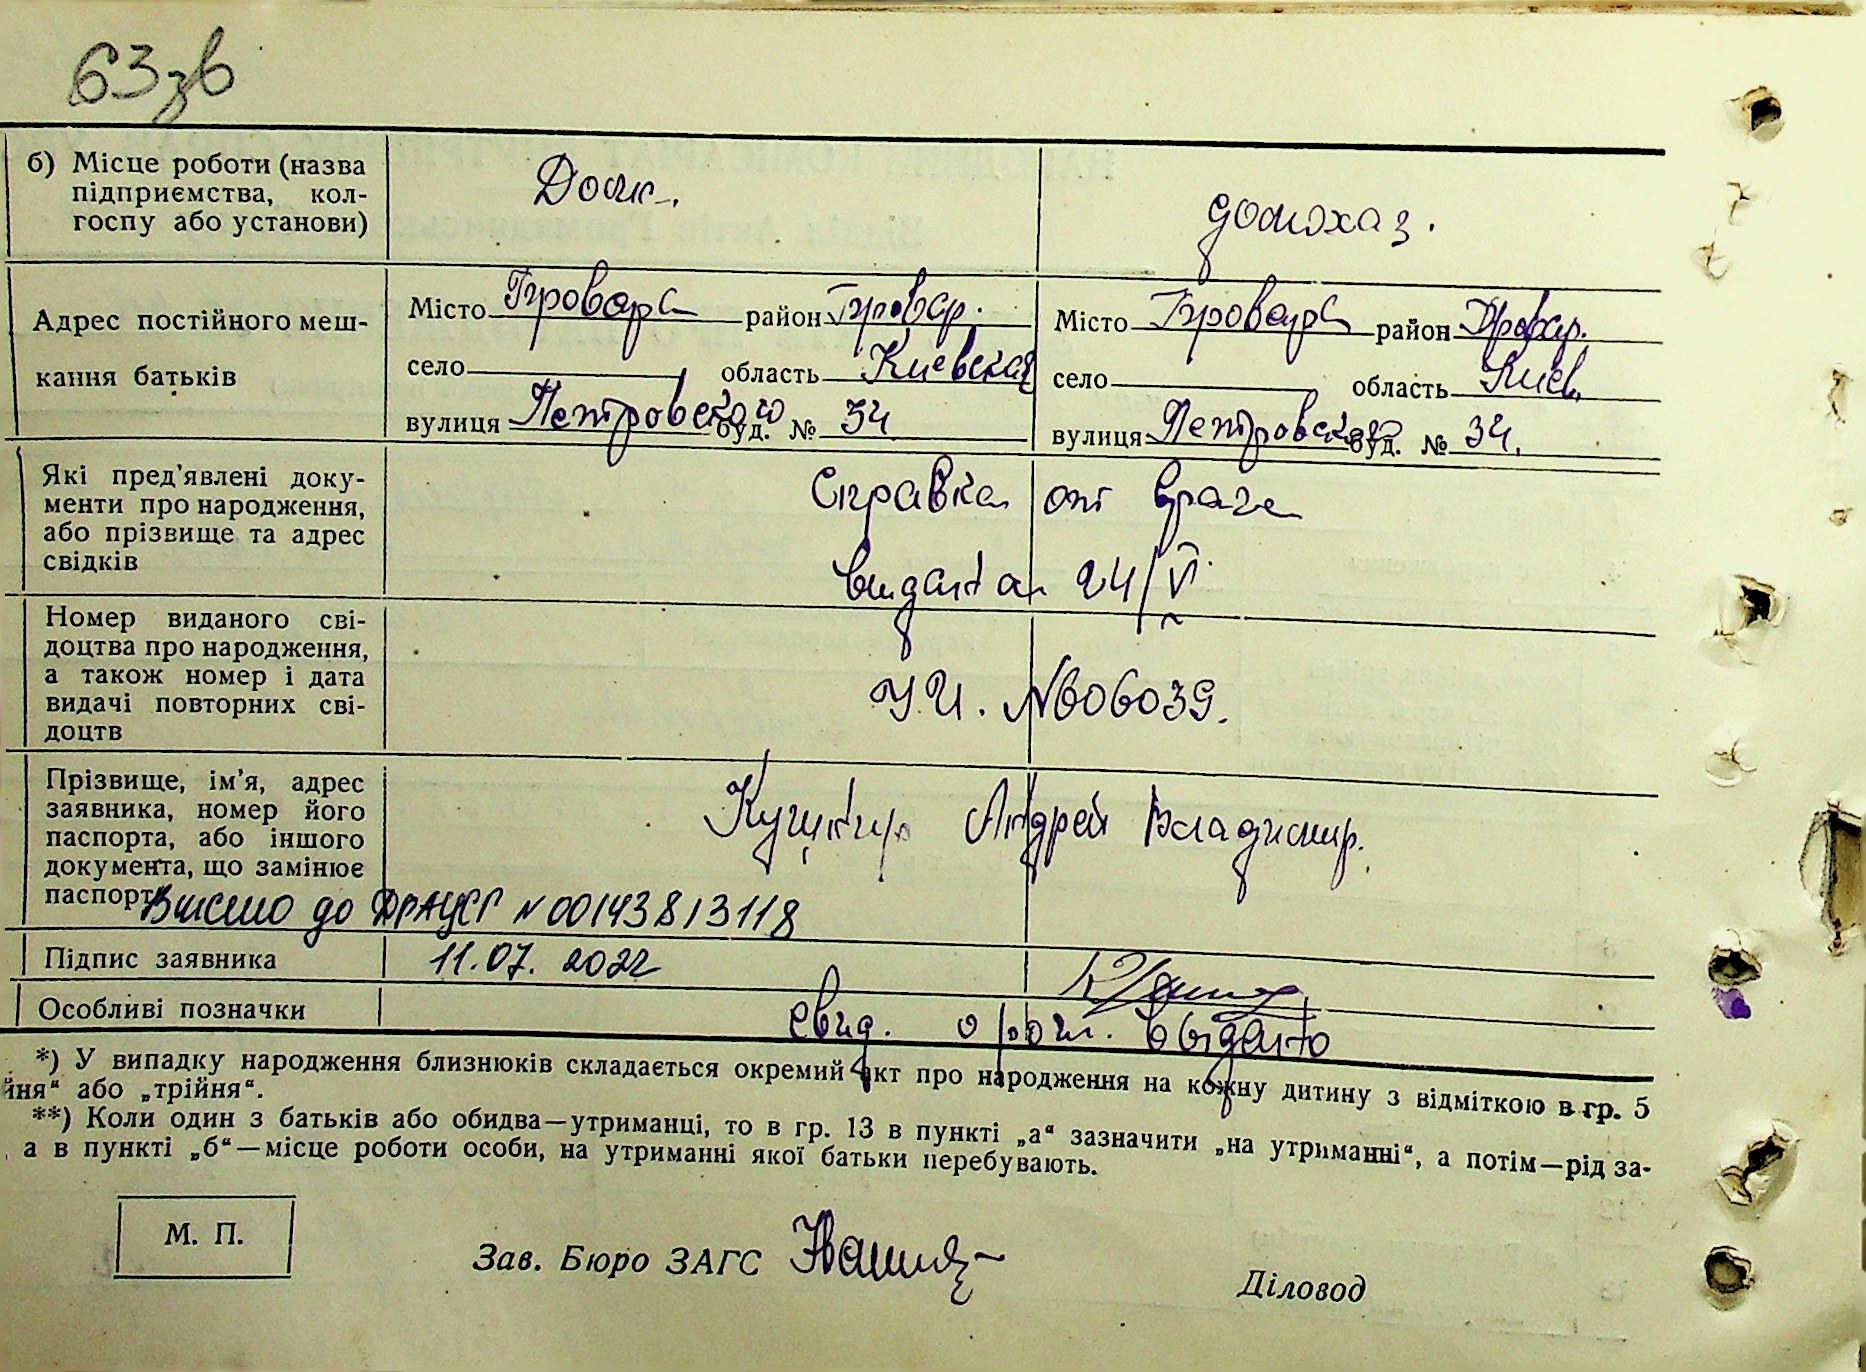 63зв
б) Місце роботи (назва
підприємства, кол-
госпу або установи)
домохаз.
Адрес постійного меш-
кання батьків
Місто Бровары район Бровар.
село область Киевская
вулиця Петровского буд. № 34
Місто Бровары район Бровар.
село область Киев.
вулиця Петровского буд. № 34.
Які пред'явлені доку-
менти про народження,
або прізвище та адрес
свідків
Справка от врача
видана 24/VI
Номер виданого сві-
доцтва про народження,
а також номер і дата
видачі повторних сві-
доцтв
N606039.
Прізвище, ім'я, адрес
заявника, номер його
паспорта, або іншого
документа, що замінює
паспорт
Андрей Владимир.
Внесено до ДРАЦСГ N 00143813118
Підпис заявника
11.07.2022
Особливі позначки
свид. о рожд. выдано
*) У випадку народження близнюків складається окремий акт про народження на кожну дитину з відміткою в гр. 5
йня“ або „трійня“.
**) Коли один з батьків або обидва—утриманці, то в гр. 13 в пункті „а“ зазначити „на утриманні“, а потім—рід за-
а в пункті „б“—місце роботи особи, на утриманні якої батьки перебувають.
М. П.
Зав. Бюро ЗАГС
Діловод